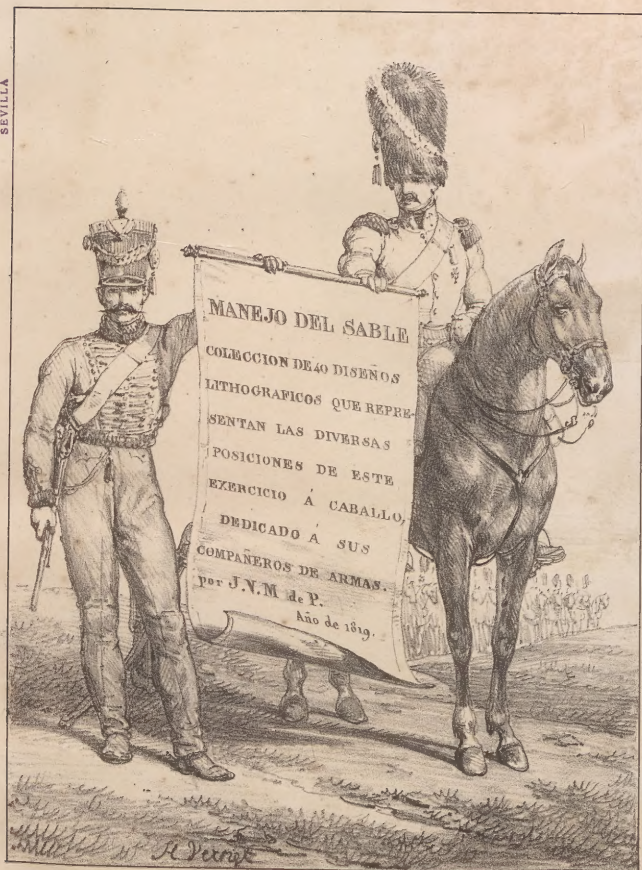 SEVILLA
MANEJO DEL SABLE
COLECCION DE 40 DISEÑOS
LITHOGRAFICOS QUE REPRE-
SENTAN LAS DIVERSAS
POSICIONES DE ESTE
EXERCICIO Á CABALLO,
DEDICADO Á SUS
COMPAÑEROS DE ARMAS.
por J.N.M de P.
Año de 1819.
H Vernet